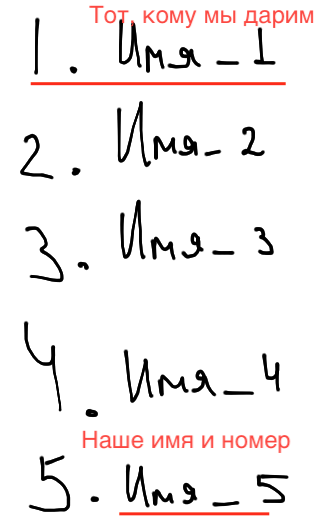 Тот, кому мы дарим
1. Имя_1
2. Имя_2
3. Имя_3
4. Имя_4
Наше имя и номер
5. Имя_5